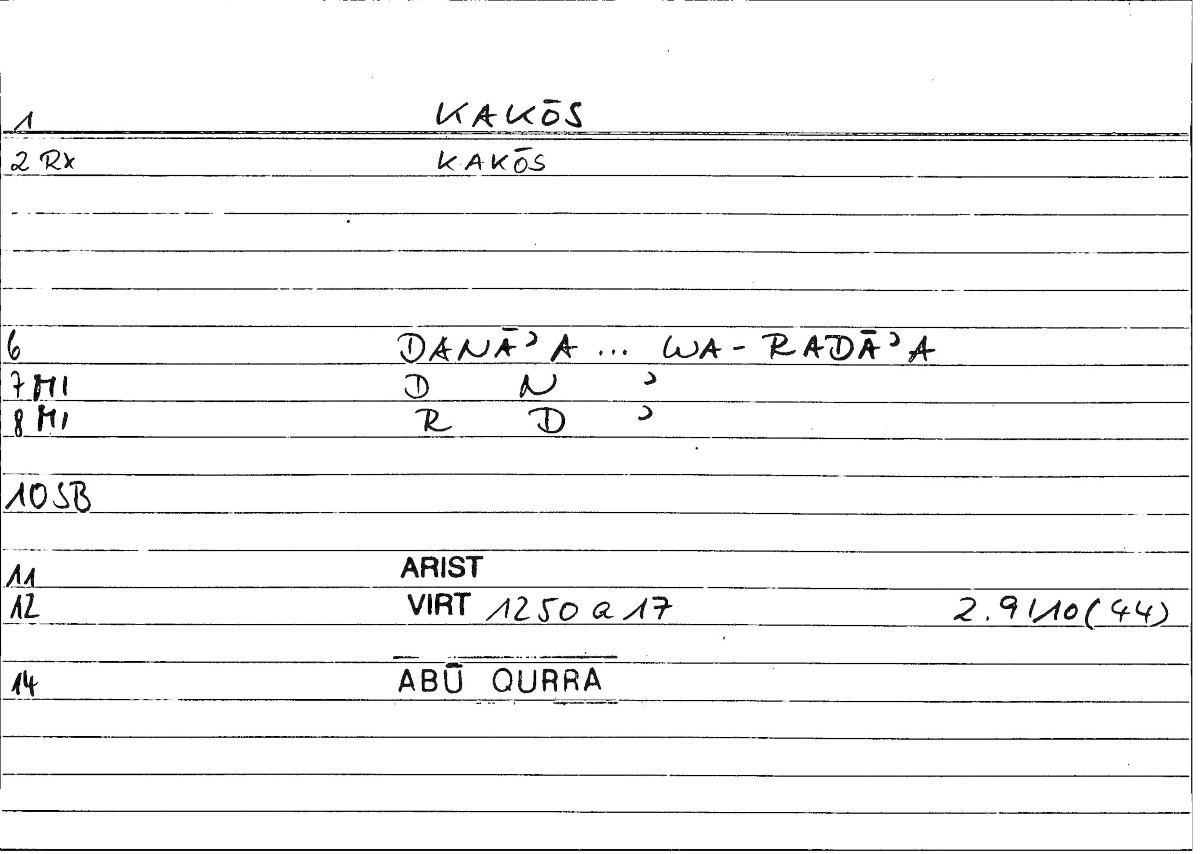 1 KAKŌS
2 Rx KAKŌS
6 DANĀʾA ... WA-RADĀʾA
7 MI D N ʾ
8 MI R D ʾ
10 SB
11 ARIST
12 VIRT 1250 a 17 2.9/10(44)
14 ABŪ QURRA